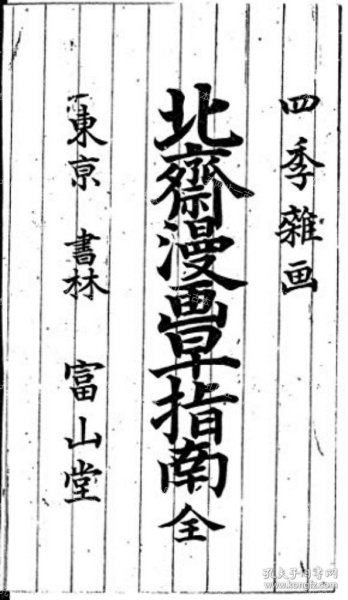 四季雜画
北齋漫画早指南 全
東京 書林 富山堂
孔夫子旧书网
www.kongfz.com